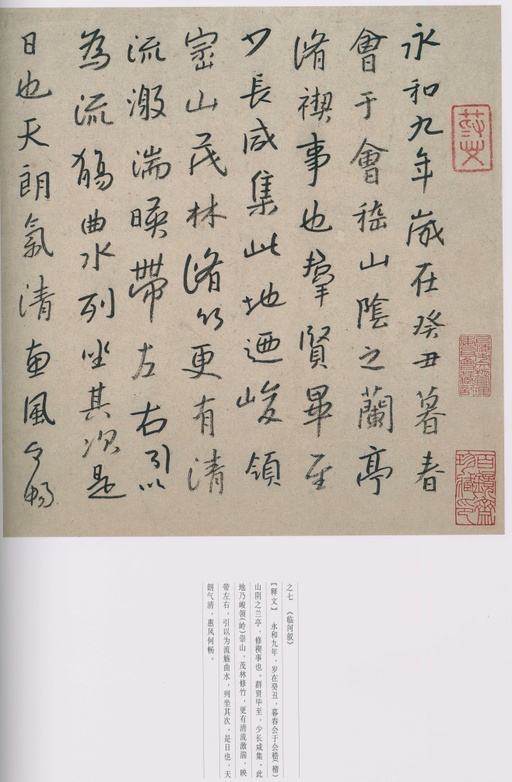 永和九年歲在癸丑暮春
會于會嵇山陰之蘭亭
脩禊事也羣賢畢至
少長咸集此地迺峻領
崈山茂林脩竹更有清
流激湍暎帶左右引以
為流觴曲水列坐其次是
日也天朗氣清惠風暢
之七 《临河叙》
【释文】 永和九年，岁在癸丑，暮春会于会嵇(稽)
山阴之兰亭，修禊事也。群贤毕至，少长咸集。此
地乃峻领(岭)崇山，茂林修竹，更有清流激湍，映
带左右，引以为流觞曲水，列坐其次，是日也，天
朗气清，惠风何畅。